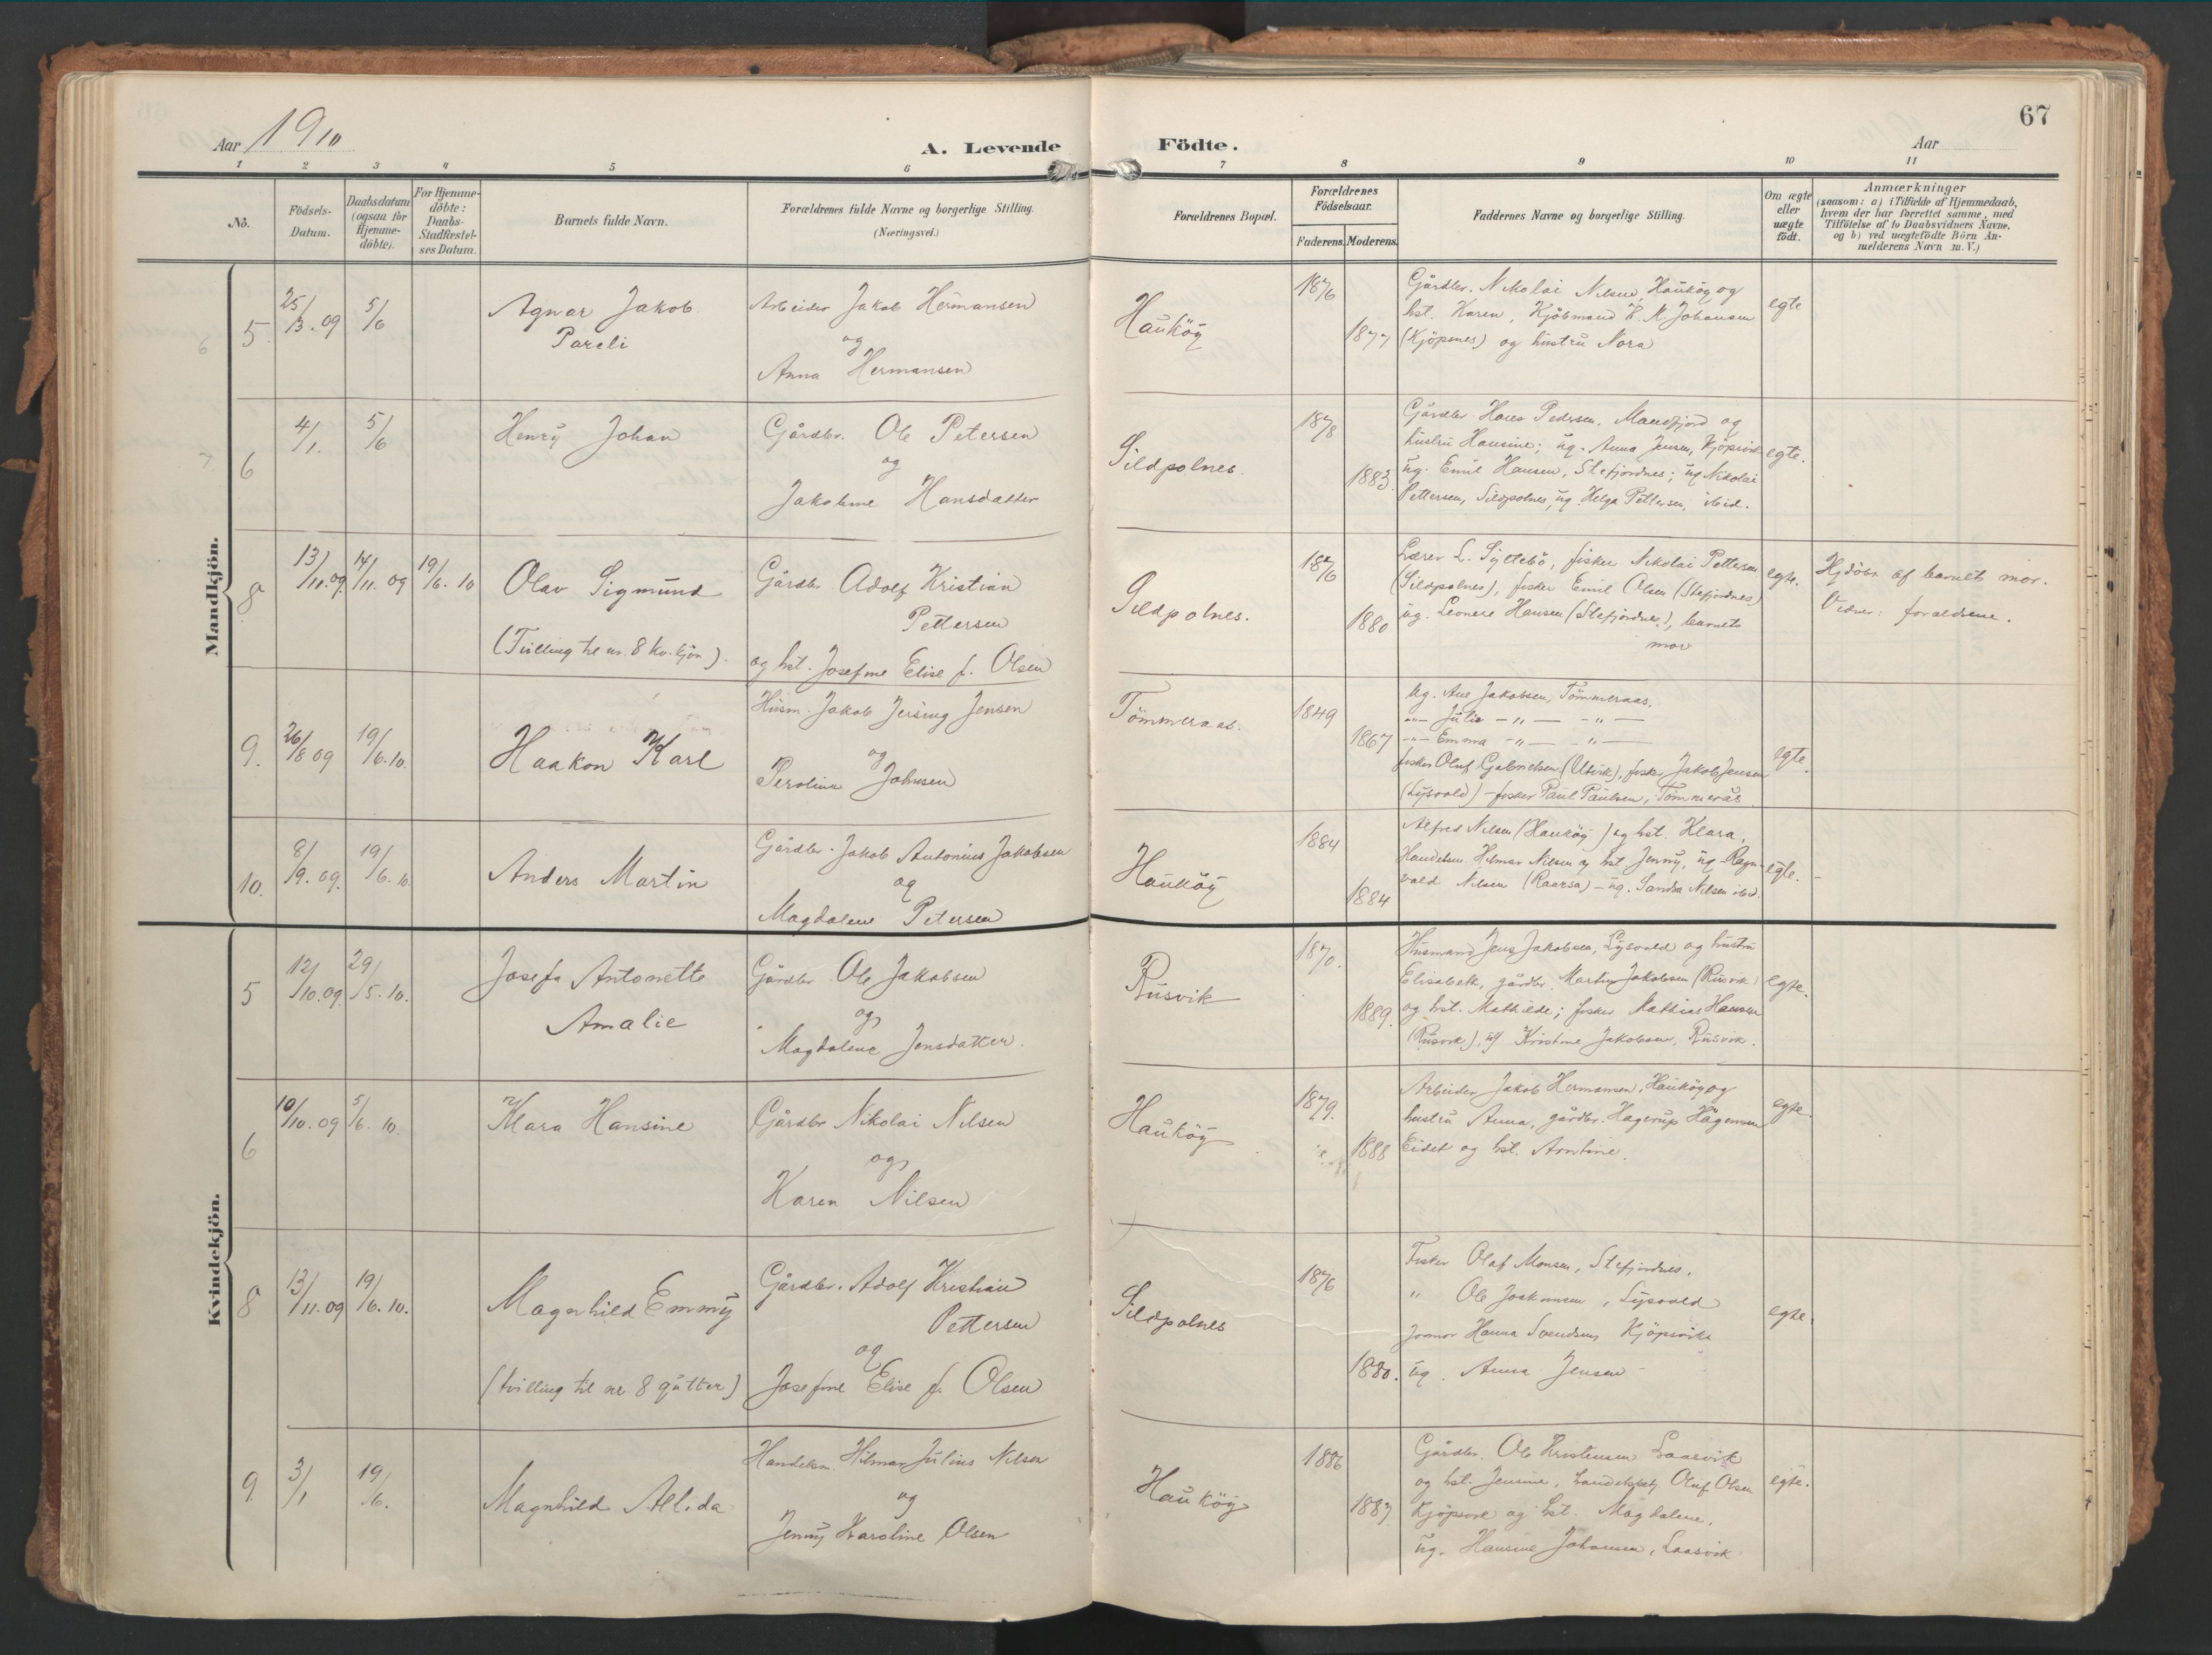 67
Aar 1910
A. Levende Födte.
Aar
1 2 3 4 5 6 7 8 9 10 11
No.
Födsels-
Datum.
Daabsdatum
(ogsaa for
Hjemme-
döbte).
For Hjemme-
döbte:
Daabs-
Stadfæstel-
ses Datum.
Barnets fulde Navn.
Forældrenes fulde Navne og borgerlige Stilling.
(Næringsvei.)
Forældrenes Bopæl.
Forældrenes
Födselsaar.
Faderens. Moderens.
Faddernes Navne og borgerlige Stilling.
Om ægte
eller
uægte
födt.
Anmærkninger
(saasom: a) i Tilfælde af Hjemmedaab,
hvem der har forrettet samme, med
Tilföielse af to Daabsvidners Navne,
og b) ved uægtefödte Börn An-
melderens Navn m. V.)
Mandkjön.
5
25/
/3.09
5/
/6
Agnar Jakob
Pareli
Arbeider Jakob Hermansen
og
Anna Hermansen
Hauköy
1876
1877
Gårdbr. Nikolai Nilsen, Hauköy og
hst. Karen, Kjöbmand K. M. Johansen
(Kjöpsnes) og hustru Nora
egte
6
4/
/1.
5/
/6
Henry Johan
Gårdbr. Ole Petersen
og
Jakobine Hansdatter
Sildpolnes.
1878
1883
Gårdbr. Hans Pedersen, Manfjord og
hustru Hansine; ug. Anna Jensen, Kjöpsvik
ug. Emil Hansen, Stefjordnes; ug Nikolai
Pettersen, Sildpolnes, ug. Helga Pettersen, ibid.
egte.
8
13/
/11.09
14/
/11. 09
19/
/6. 10
Olav Sigmund
(Tvilling til nr. 8 kv. kjön).
Gårdbr. Adolf Kristian
Pettersen
og hst. Josefine Elise f. Olsen
Sildpolnes.
1876
1880
Lærer L. Syltebö, fisker Nikolai Pettersen
(Sildpolnes), fisker Emil Olsen (Stefjordnes)
ug. Leonore Hansen (Stefjordnes), barnets
mor
egte.
Hjdöbt af barnets mor.
Vidner: forældrene.
9.
26/
/8 09
19/
/6.10.
Haakon Karl
Husm. Jakob Jersing Jensen
og
Peroline Johnsen
Tömmeraas.
1849
1867
Ug. Ane Jakobsen, Tömmeraas.
-"- Julie -"- -"-
-"- Emma -"- -"-
fisker Oluf Gabrielsen (Utvik), fisker Jakob Jensen
(Lysvold) - fisker Paul Paulsen, Tömmerås
egte.
10.
8/
/9. 09.
19/
/6. 10.
Anders Martin
Gårdbr. Jakob Antonius Jakobsen
og
Magdalene Petersen
Hauköy
1884
1884
Alfred Nilsen (Hauköy) og hst. Klara,
Handelsm. Hilmar Nilsen og hst Jenny, ug. Ragn-
vald Nilsen (Raarsa) - ug. Sandra Nilsen ibid.
egte.
Kvindekjön.
5
12/
/10.09
29/
/5. 10.
Josefa Antonette
Amalie
Gårdbr. Ole Jakobsen
og
Magdalene Jensdatter.
Rusvik
1870.
1889.
Husmand Jens Jakobsen, Lysvold og hustru
Elisabeth, gårdbr. Martin Jakobsen (Rusvik)
og hst. Mathilde; fisker Mathias Hansen
(Rusvik), ug Kristine Jakobsen, Rusvik.
egte.
6
10/
/10. 09
5/
/6. 10.
Klara Hansine
Gårdbr Nikolai Nilsen
og
Karen Nilsen
Hauköy
1879.
1888
Arbeider Jakob Hermansen, Hauköy og
hustru Anna, gårdbr. Hagerup Hågensen
Eidet og hst. Arntine.
egte.
8
13/
/11.09
19/
/6. 10.
Magnhild Emmy
(tvilling til nr. 8 gutter)
Gårdbr. Adolf Kristian
Pettersen
og
Josefine Elise f. Olsen
Sildpolnes
1876
1880.
Fisker Olaf Monsen, Stefjordnes.
" Ole Joakimsen, Lysvold
Jormor Hanna Svendsen, Kjöpsvik
ug. Anna Jensen -
egte.
9.
3/
/1
19/
/6.
Magnhild Alida
Handelsm. Hilmar Julius Nilsen
og
Jenny Karoline Olsen
Hauköy
1886
1887
Gårdbr. Ole Kristensen Laasvik
og hst. Jensine, handelsbetj. Oluf Olsen
Kjöpsvik og hst. Magdalene,
ug. Hansine Johansen, Laasvik
egte.